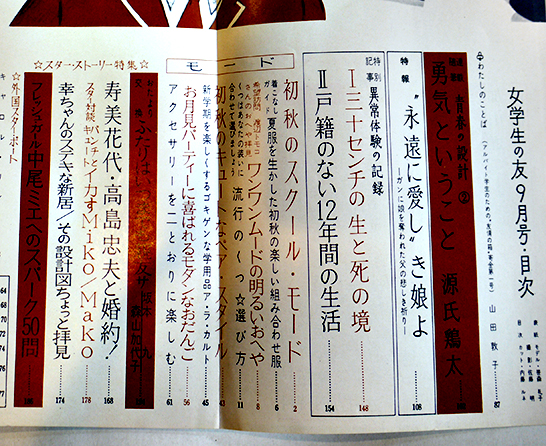 女学生の友9月号・目次
わたしのことば
山田敦子
87
勇気ということ 源氏鶏太
特報 "永遠に愛し"き娘よ
―ガンに娘を奪われた父の悲しき祈り―
108
特別記事 異常体験の記録
Ⅰ 三十センチの生と死の境
148
Ⅱ 戸籍のない12年間の生活
154
モード
初秋のスクール・モード
2
着こなしガイド 夏服を生かした初秋の楽しい組み合わせ服
6
ワンワンムードの明るいおへや
8
くつはあなたの装いに合わせて選びましょう 流行のくつ☆選び方
11
初秋のキュートなヘアスタイル
43
新学期を楽しくするゴキゲンな学用品ア・ラ・カルト
45
お月見パーティーに喜ばれるモダンなおだんご
56
アクセサリーを二とおりに楽しむ
61
☆スター・ストーリー特集☆
坂本 九
森山加代子
寿美花代・高島忠夫と婚約!
168
スター対談 パンチトイカすMiko/Mako
178
幸ちゃんのステキな新居/その設計図ちょっと拝見
174
フレッシュガール中尾ミエへのスパーク50問
☆外国スターポート
キャロル
64
68
70
72
74
76